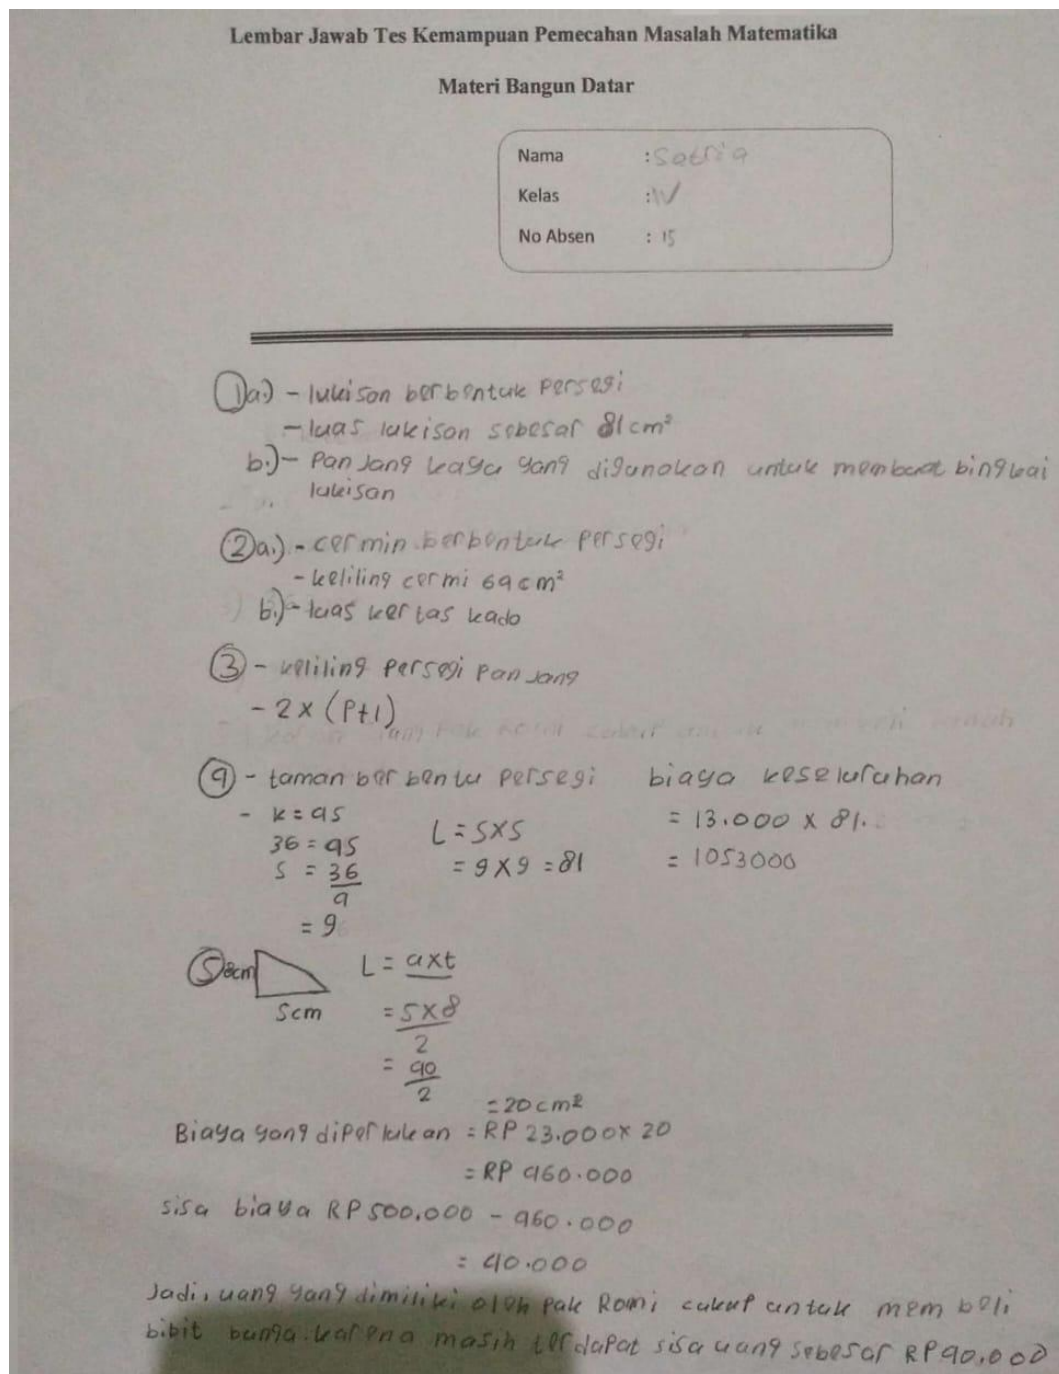 Lembar Jawab Tes Kemampuan Pemecahan Masalah Matematika
Materi Bangun Datar
Nama : Satria
Kelas : IV
No Absen : 15
1 a.) - lukisan berbentuk persegi
- luas lukisan sebesar 81 cm²
b.) - Panjang kayu yang digunakan untuk membuat bingkai
lukisan
2 a.) - cermin berbentuk persegi
- keliling cermi 64 cm²
b.) - luas kertas kado
3 - keliling persegi panjang
- 2 x (P+l)
4 - taman berbentu persegi biaya keselurahan
- k = 4s L = s x s = 13.000 x 81.
36 = 4s = 9 x 9 = 81 = 1053000
s = 36/4
= 9
5 8cm L = a x t
5cm = 5 x 8 / 2
= 40/2
= 20 cm²
Biaya yang diperlukan = RP 23.000 x 20
= RP 460.000
sisa biaya RP 500.000 - 460.000
= 40.000
Jadi, uang yang dimiliki oleh pak Romi cukup untuk membeli
bibit bunga karena masih terdapat sisa uang sebesar RP 40.000